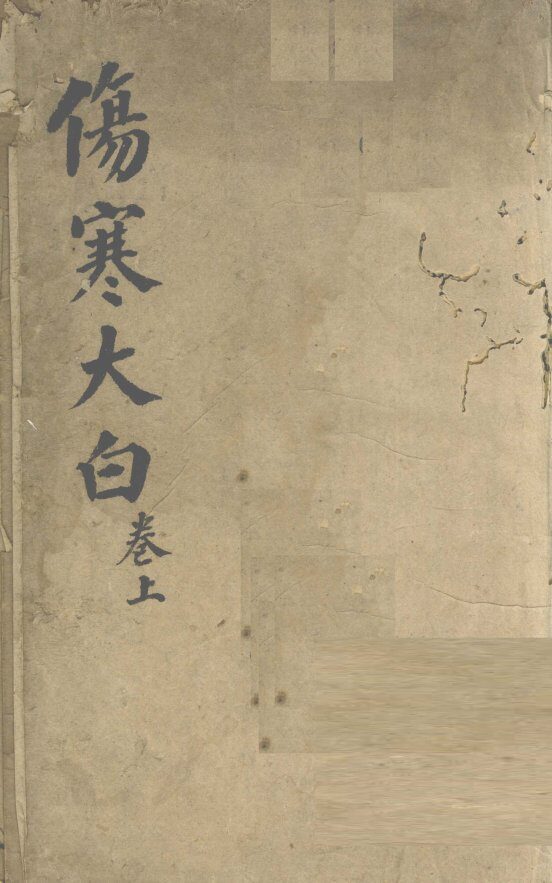 傷寒大白
卷上